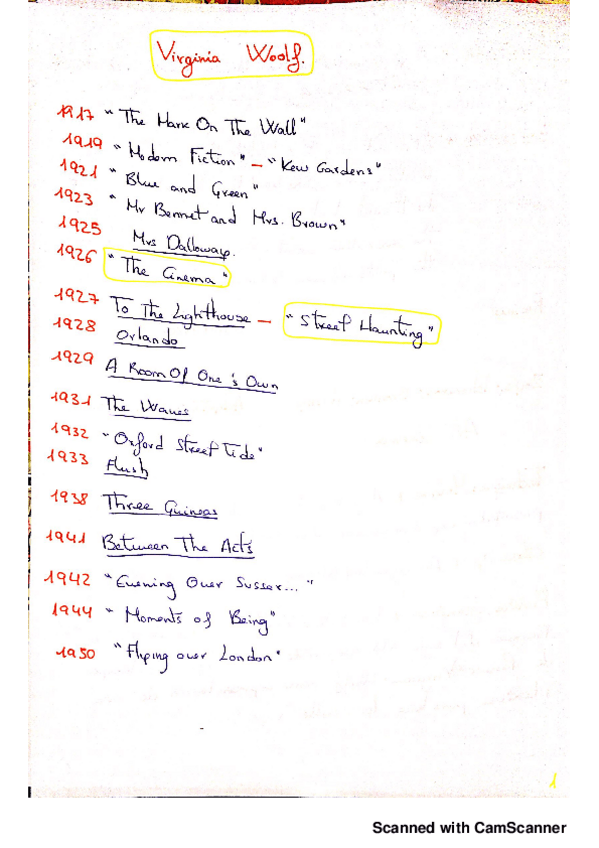 Virginia Woolf.
1917 "The Mark On The Wall"
1919 "Modern Fiction" - "Kew Gardens"
1921 "Blue and Green"
1923 "Mr Bennet and Mrs. Brown"
1925 Mrs Dalloway.
1926 "The Cinema"
1927 To The Lighthouse - "Street Haunting"
1928 Orlando
1929 A Room Of One's Own
1931 The Waves
1932 "Oxford Street Tide"
1933 Flush
1938 Three Guineas
1941 Between The Acts
1942 "Evening Over Sussex..."
1944 "Moments of Being"
1950 "Flying over London"
1
Scanned with CamScanner